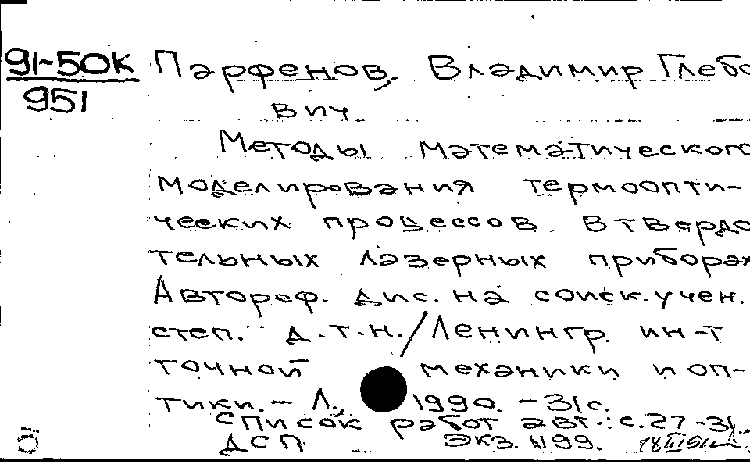 91-50К Парфенов, Владимир Глебо
951 вич
Методы математического
моделирования термоопти-
ческих процессов в твердо
тельных лазерных приборах
Автореф. дис. на соиск. учен.
степ. д.т.н./Ленингр. ин-т
точной механики и оп-
тики. - Л., 1990. - 31с.
Список работ авт.: с.27-31.
ДСП Экз. №99.